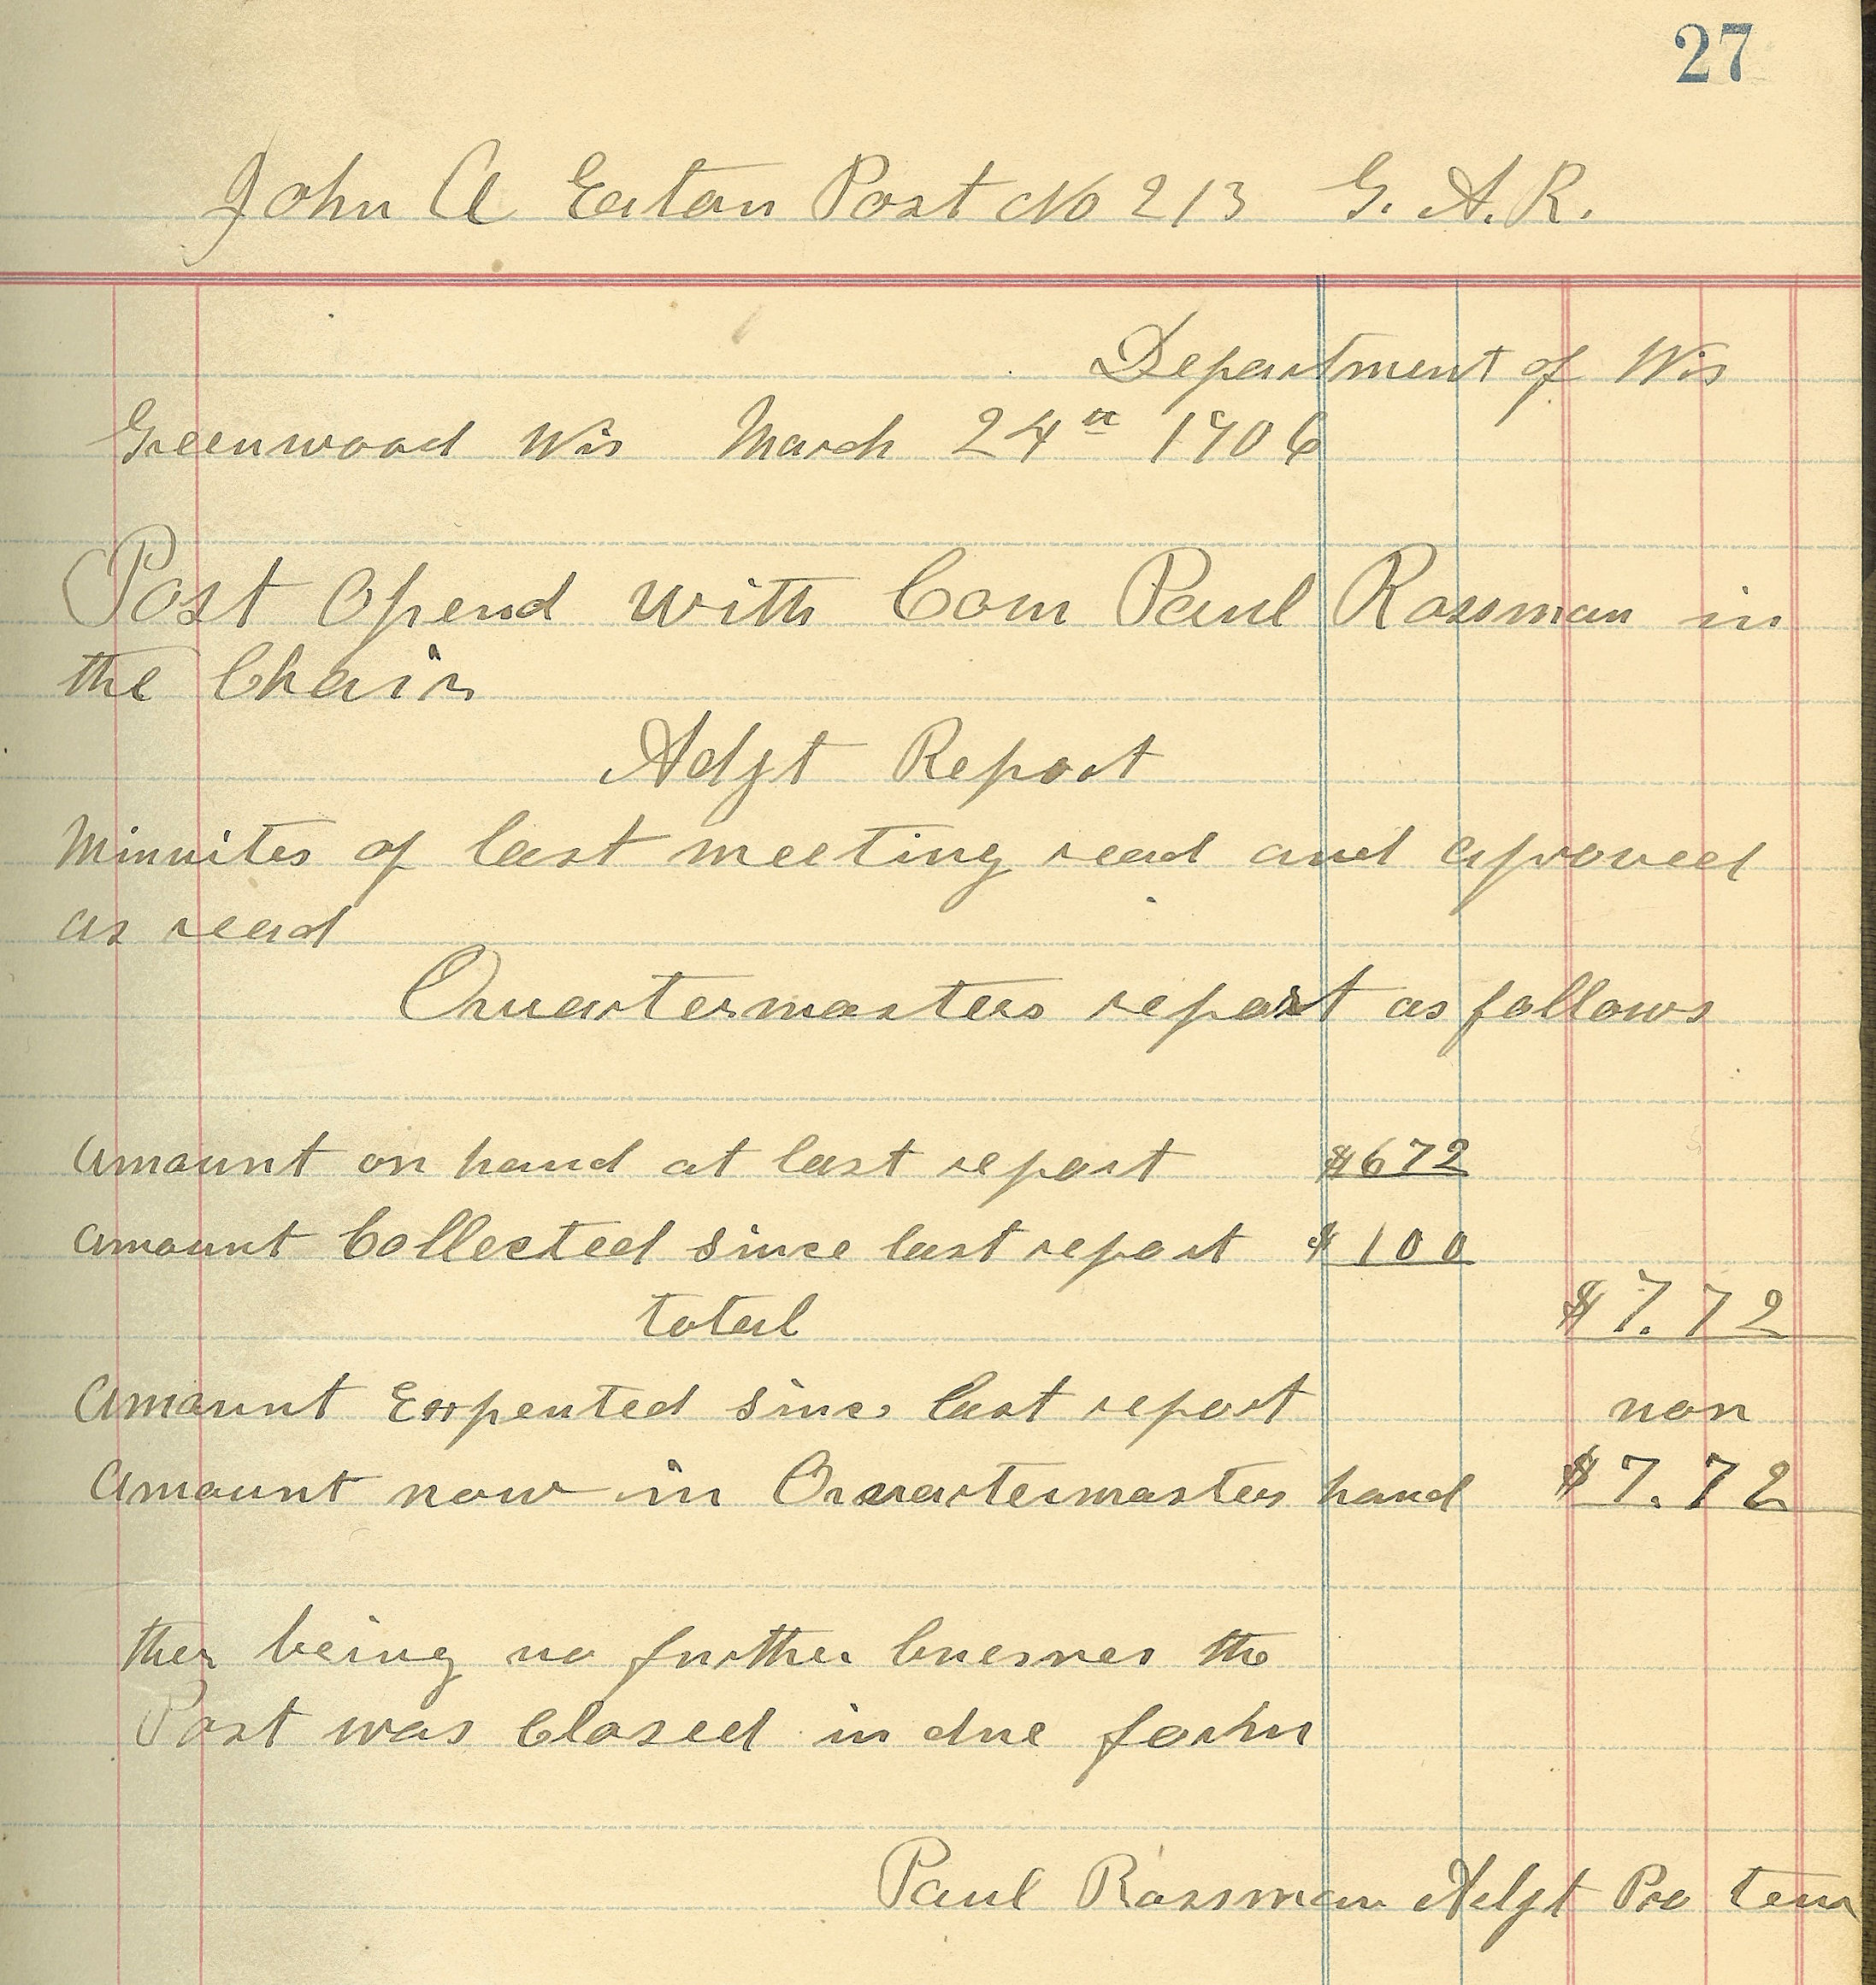 27
John A Eaton Post No 213 G. A. R.
Department of Wis
Greenwood Wis March 24th 1906
Post Opend with Com Paul Rossman in
the Chair
Adjt Report
Minnites of last meeting read and aproved
as read
Quartermasters report as follows
Amount on hand at last report $672
Amount Collected since last report $100
total $7.72
Amount Expented since last report non
Amount now in Quartermasters hand $7.72
ther being no further buesnes the
Post was Closed in due form
Paul Rossman Adjt Pro tem